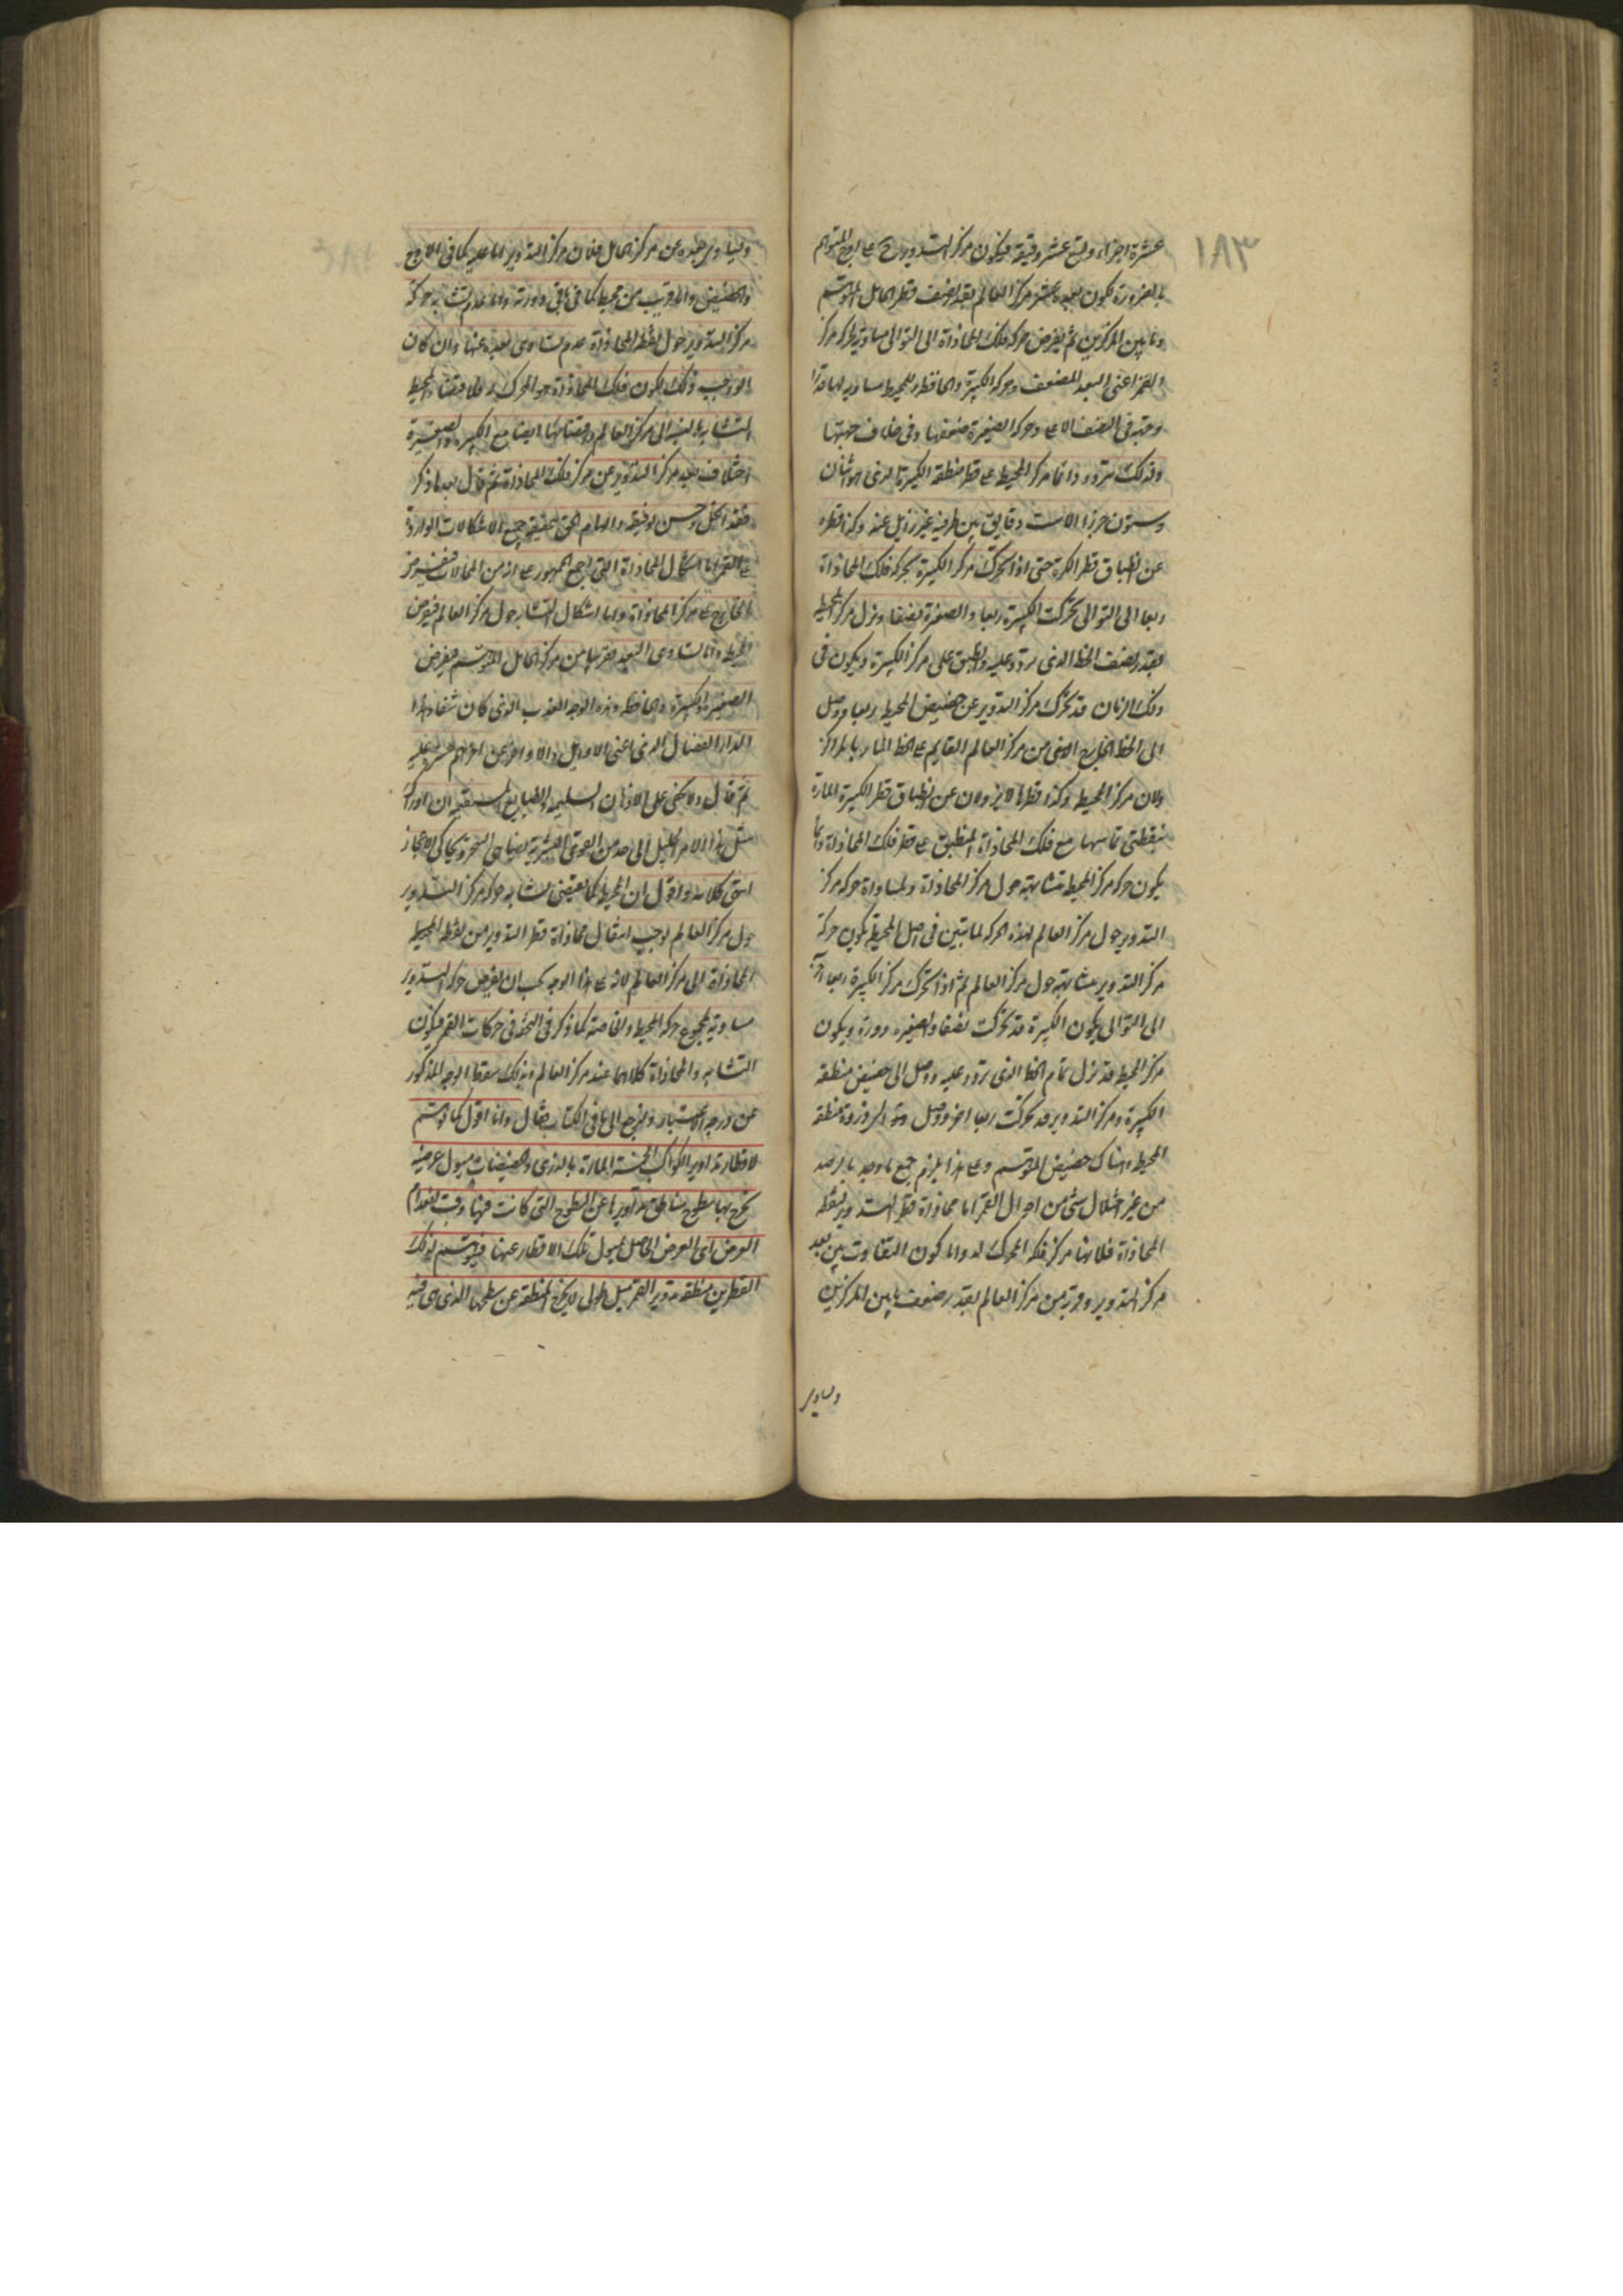 ١٨٣
عشرة اجزاء وتسع عشر دقيقة فيكون مركز التدوير ح على اوج المتوهم
بالضرورة لكون بعده عن مركز العالم بقدر نصف قطر الحامل المتوهم
وما بين المركزين ثم يفرض حركة فلك المحاذاة الى التوالى مساوية لحركة مركز
القمر اعنى البعد المضعف وحركة الكبيرة والحافظة والمحيط مساوية لها قدرا
وجهة فى النصف الاعلى وحركة الصغيرة ضعفها وفى خلاف جهتها
ولذلك يتردد دائما مركز المحيط على قطر منطقة الكبيرة الذى هو اثنان
وستون جزءا الا ست دقايق بين طرفيه غير زايل عنه وكذا قطره
عن انطباق قطر الكرة حتى اذا تحرك مركز الكبيرة بحركة فلك المحاذاة
ربعا الى التوالى تحركت الكبيرة ربعا والصغيرة نصفا ونزل مركز المحيط
بقدر نصف الخط الذى تردد عليه وانطبق على مركز الكبيرة ويكون فى
ذلك الزمان قد تحرك مركز التدوير عن حضيض المحيط ربعا ووصل
الى الخط الخارج من مركز العالم القايم على الخط المار بالمراكز
ولان مركز المحيط وكذا قطرها لا يزولان عن انطباق قطر الكبيرة المارة
بنقطتى تماسها مع فلك المحاذاة المنطبق على قطر فلك المحاذاة دائما
يكون حركة مركز المحيط متشابهة حول مركز المحاذاة ولمساواة حركة مركز
التدوير حول مركز العالم لهذه الحركة لما تبين فى اصل المحيطة يكون حركة
مركز التدوير متشابهة حول مركز العالم ثم اذا تحرك مركز الكبيرة ربعا آخر
الى التوالى يكون الكبيرة قد تحركت نصفا والصغيرة دورة ويكون
مركز المحيط قد نزل تمام الخط الذى تردد عليه ووصل الى حضيض منطقة
الكبيرة ومركز التدوير قد تحركت ربعا اخر ووصل الى ذروة منطقة
المحيط وهناك حضيض المتوهم وعلى هذا يلزم جميع ما وجد بالرصد
من غير اختلال شئ من احوال القمر اما محاذاة قطر التدوير لنقطة
المحاذاة فلانها مركز فلكه المحرك له واما كون التفاوت بين بعد
مركز التدوير وقربه من مركز العالم بقدر ضعف ما بين المركزين
وتساوى
وتساوى بعده عن مركز الحامل فلان مركز التدوير اما عليه كما فى الاوج
والحضيض واما قريب من محيطه كما فى باقى دورته واما عدم تشابه حركة
مركز التدوير حول نقطة المحاذاة عدم تساوى بعده عنها وان كان
الموجب ذلك لكون فلك المحاذاة هو المحرك له فلاقتضاء المحيط
التشابه بالنسبة الى مركز العالم واقتضائها ايضا مع الكبيرة والصغيرة
اختلاف بعد مركز التدوير عن مركز فلك المحاذاة ثم قال بعد ما ذكر
فقد انحل وحسن توفيقه والهام الحق بحقيقه جميع الاشكالات الواردة
على القمر اما اشكال المحاذاة التى اجمع الجمهور على انه من المحالات فبفرض
الخارج على مركز المحاذاة واما اشكال التشابه حول مركز العالم فبفرض
المحيط واما تساوى البعد تقريبا من مركز الحامل المتوهم فبفرض
الصغيرة والكبيرة والحافظة وهذه الوجه العذب الذى كان شفاء لهذا
الداء العضال الذى اعنى الاوايل والاواخر عن اخرهم
ثم قال ولا يخفى على الاذهان السليمة والطبايع المستقيمة ان ادراك
مثل هذا الامر الجليل الى حد من القوى البشرية يضاهى السحر ويحاكى الاعجاز
انتهى كلامه واقول ان المحيط كما يقتضى تشابه حركة مركز التدوير
حول مركز العالم يوجب انتقال محاذاة قطر التدوير من نقطة المحيط
المحاذاة الى مركز العالم لانه على هذا الوجه يجب ان يفرض حركة التدوير
مساوية لمجموع حركة المحيط والخاصة كما ذكر فى التحفة فى حركات القمر فيكون
التشابه والمحاذاة كلاهما عند مركز العالم وبذلك سقط الوجه المذكور
عن درجة الاعتبار ولنرجع الى ما فى الكتاب فقال وانا اقول كما توهم
لاقطار تداوير الكواكب الخمسة المارة بالذرى والحضيضات ميول عرضية
تخرج بها سطوح مناطق تداويرها عن السطوح التى كانت فيها وقت انعدام
العرض اى العرض الحاصل بميول تلك الاقطار عنها فليتوهم لذلك
القطر من منطقة تدوير القمر ميل طولى لا يخرج المنطقة عن سطحها الذى هى فيه